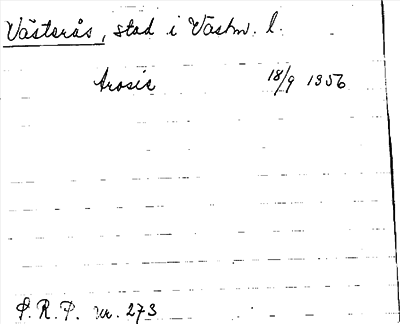 Västerås, stad i Västm. l.
Arosie 18/9 1356
P. R. P. nr. 273